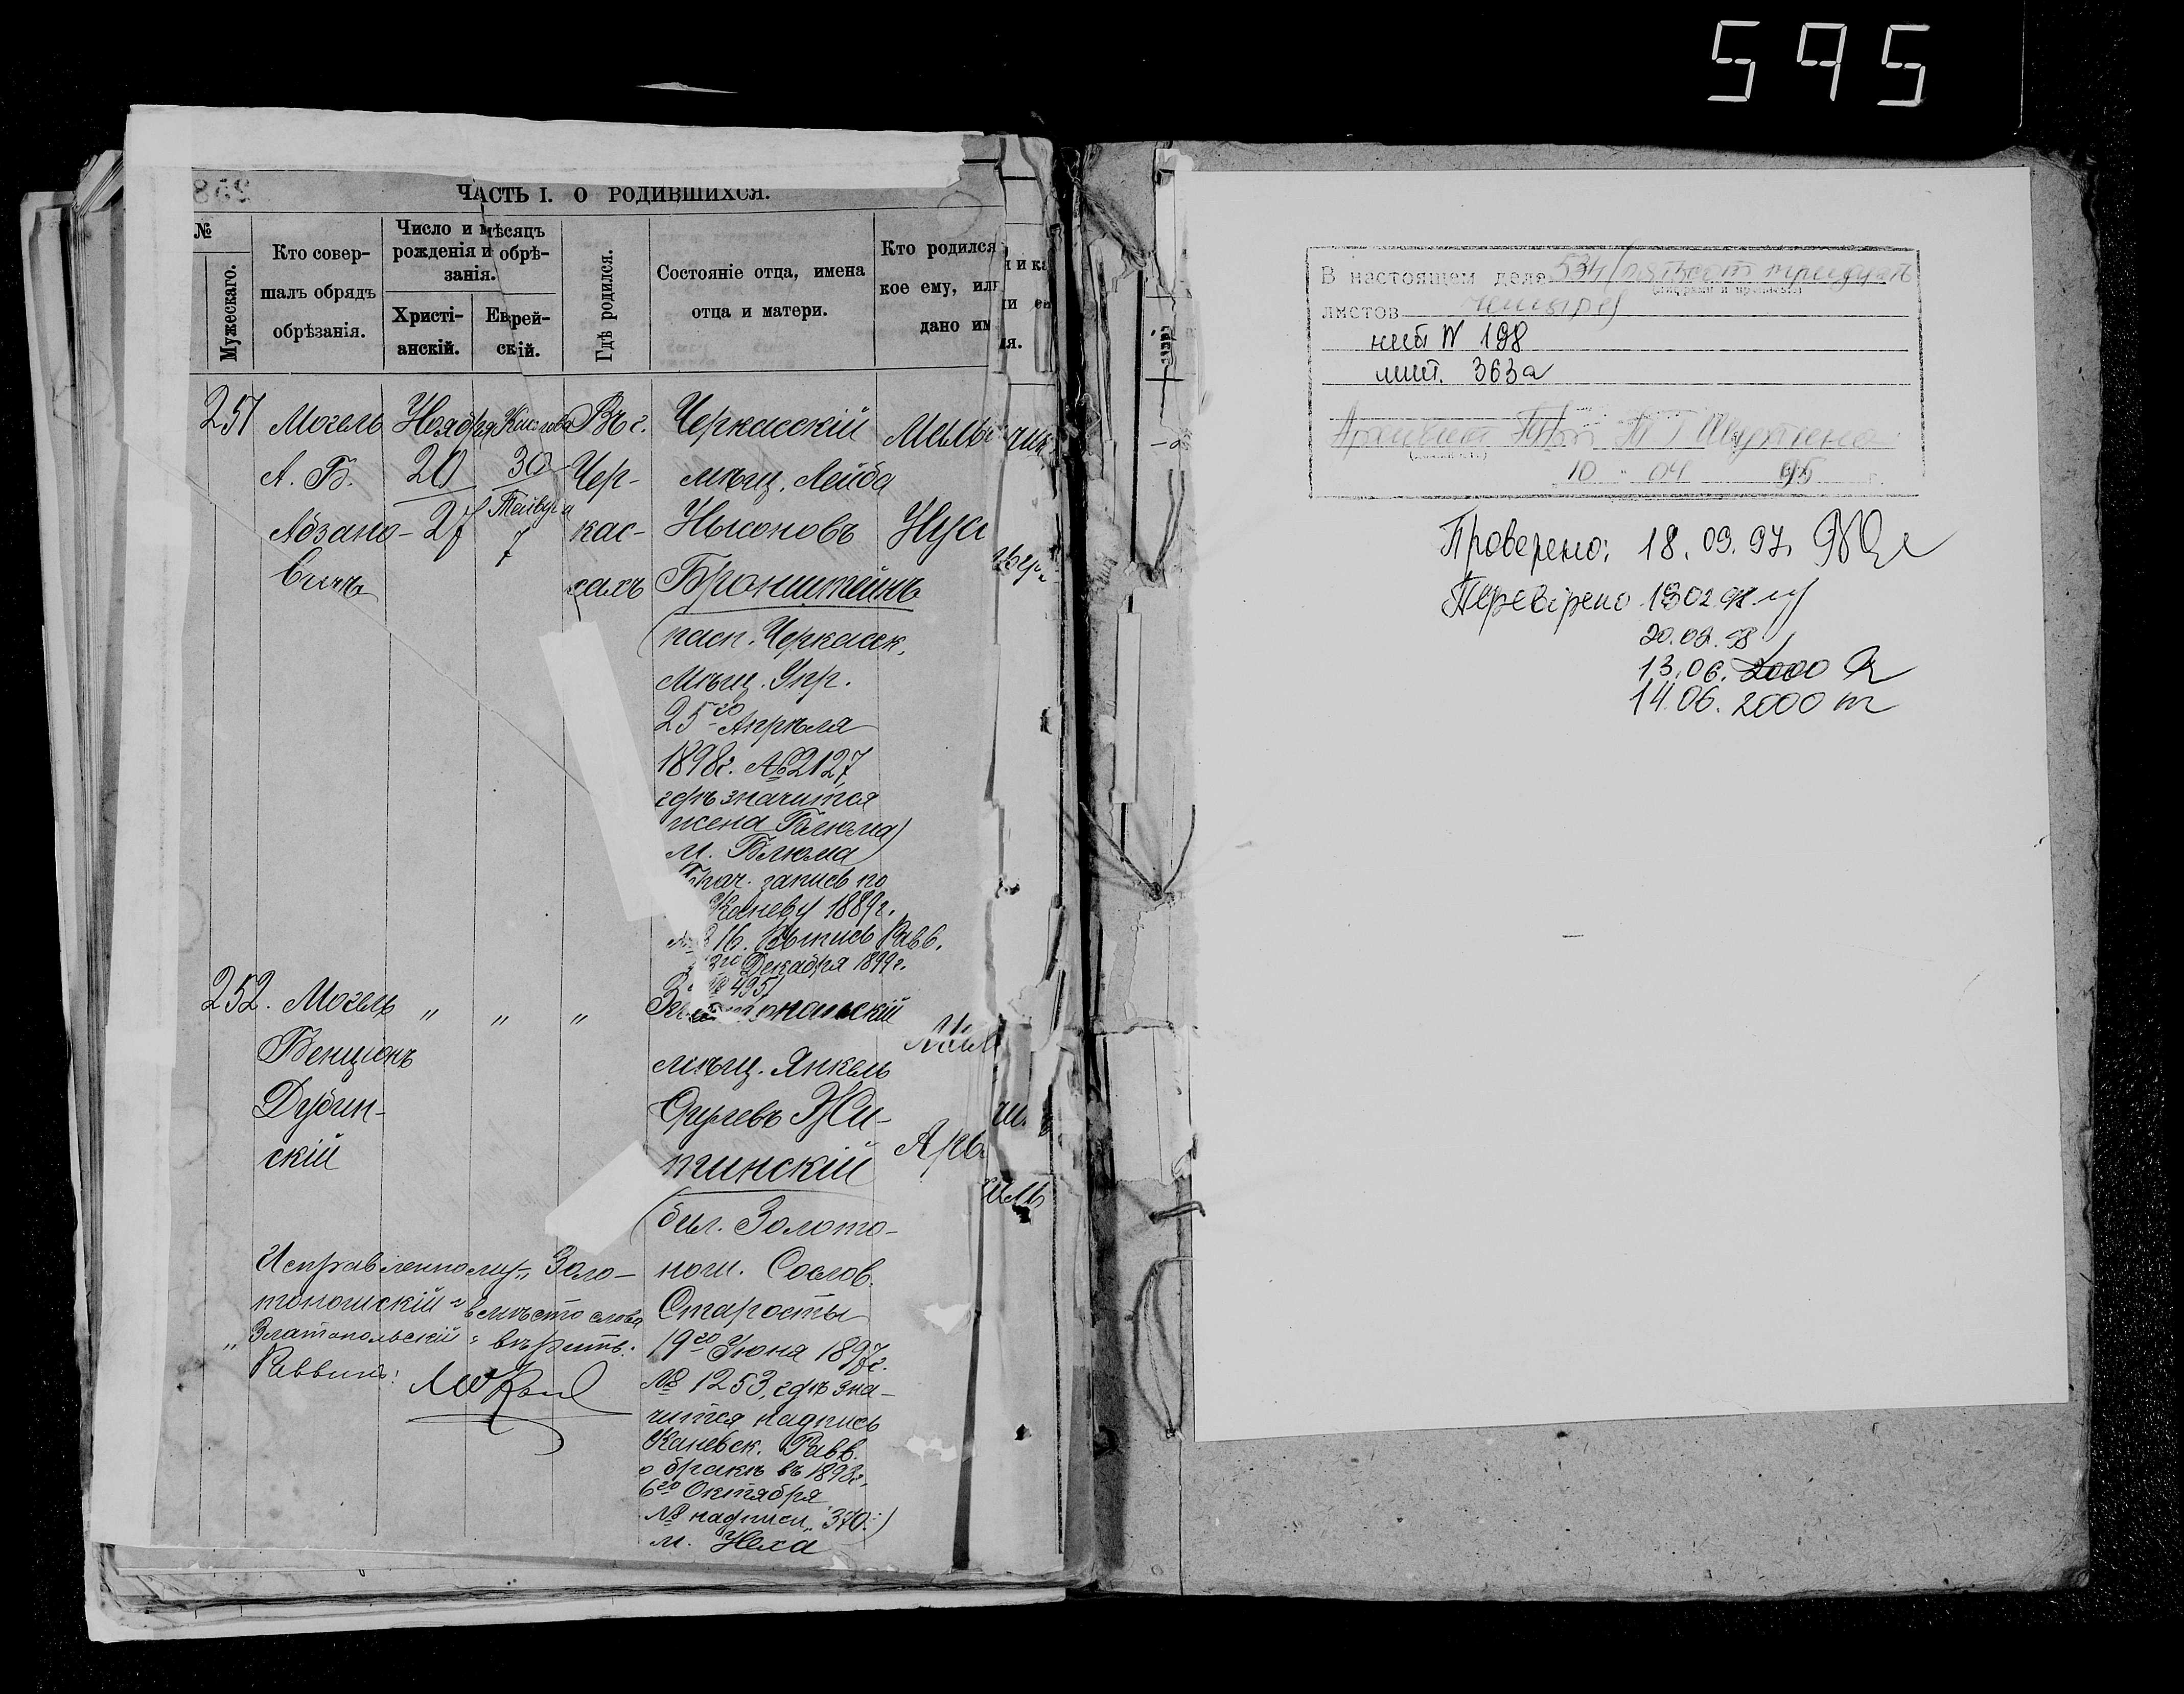 595
258
ЧАСТЬ I. О РОДИВШИХСЯ.
№
Мужескаго.
Кто совер-
шалъ обрядъ
обрѣзанія.
Число и мѣсяцъ
рожденія и обрѣ-
занія.
Христі-
анскій.
Еврей-
скій.
Гдѣ родился.
Состояніе отца, имена
отца и матери.
Кто родился
кое ему, или
дано им
251
Могель
А. Б.
Абзано-
вичъ
Ноября
20
27
Кислова
30
7
Въ г.
Чер-
кас-
сахъ
Черкасскій
мѣщ. Лейба
Нысоновъ
Бронштейнъ
(пасп. Черкасск.
Мѣщ. Упр.
25го Апрѣля
1898г. №2127,
гдѣ значится
жена Блюма)
м. Блюма
Брач. запись по
Каневу 1889г.
16. Выпись Равв.
Декабря 1899г.
№ 4951
Маль
чик
Нус
252.
Могель
Бенціонъ
Дубин-
скій
"
"
"
мѣщ. Янкель
Сруревъ Жи-
тинскій
(бил. Золото-
нош. Сослов.
Старосты
19го Іюня 1897г.
№ 1253, гдѣ зна-
чится надпись
Каневск. Равв.
о бракѣ въ 1893г.
6го Октября
№ надписи „370.)
м. Неха
Исправленному „Золо-
тоношскій“ вмѣсто слова
„Златопольскій“ вѣрить:
Раввинъ:
В настоящем деле 534 (пятьсот тридцать
листов четыре)
лит N 198
лит. 363а
10 " 04 95 г.
Проверено: 18.09.97.
Перевірено 13 02 98
20.09.98
13.06. 2000
14.06. 2000